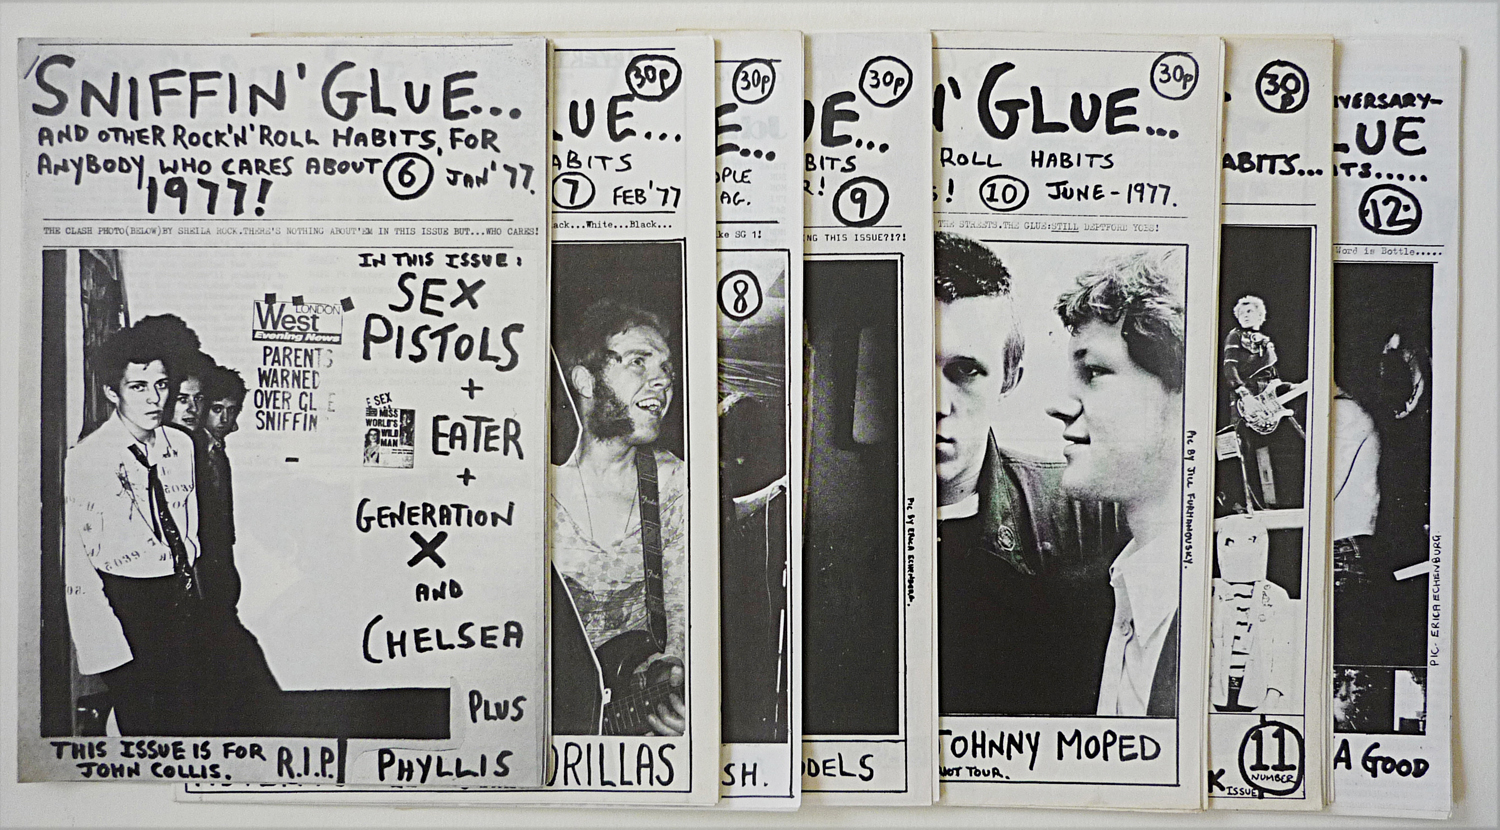 SNIFFIN' GLUE...
AND OTHER ROCK'N'ROLL HABITS, FOR
ANYBODY WHO CARES ABOUT 6 JAN'77.
1977!
THE CLASH PHOTO(BELOW)BY SHEILA ROCK.THERE'S NOTHING ABOUT'EM IN THIS ISSUE BUT...WHO CARES!
IN THIS ISSUE:
SEX
PISTOLS
+
EATER
+
GENERATION
X
AND
CHELSEA
PLUS
PHYLLIS
LONDON
West
Evening News
PARENTS
WARNED
OVER GL E
SNIFFIN
SEX
MISS
WORLD'S
WILD
MAN
THIS ISSUE IS FOR
JOHN COLLIS.
R.I.P.
30p
UE...
ABITS
7 FEB'77
ack...White...Black...
ORILLAS
30p
E...
OPLE
AG.
ke SG 1!
8
SH.
30p
UE...
BITS
R! 9
NG THIS ISSUE?!?!
PIC BY ERICA ECHENBERG.
ODELS
30p
N' GLUE...
ROLL HABITS
S! 10 JUNE-1977.
THE STREETS.THE GLUE:STILL DEPTFORD YOBS!
PIC BY JILL FURMANOVSKY.
JOHNNY MOPED
NOT TOUR.
30p
ABITS...
K ISSUE
11
NUMBER
IVERSARY-
LUE
ITS.....
12
Word is Bottle.....
PIC. ERICA ECHENBURG.
A GOOD